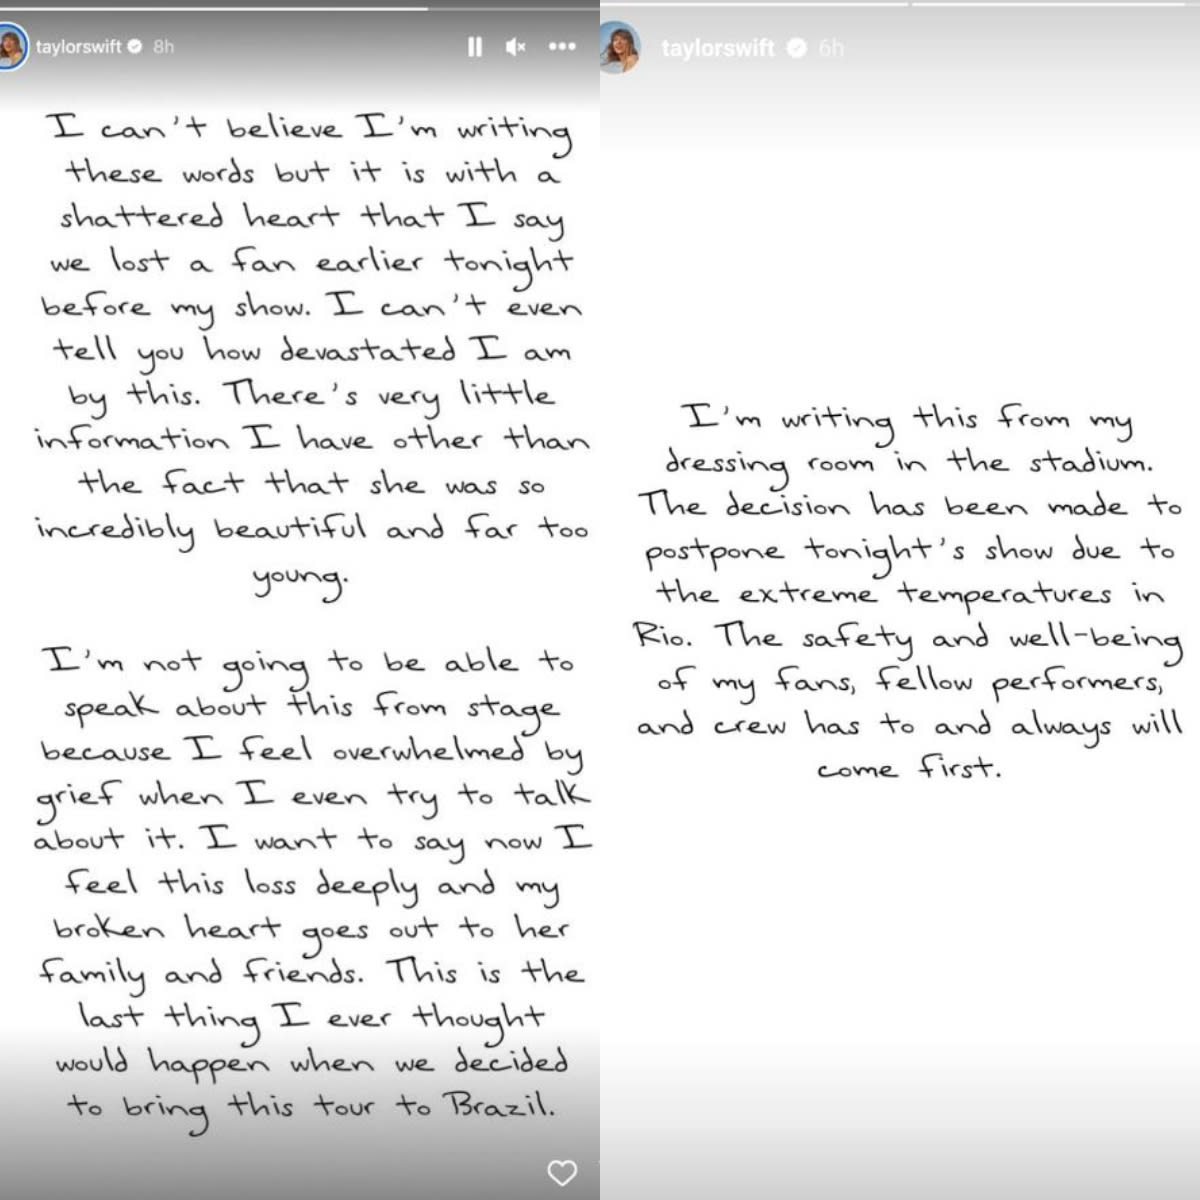 taylorswift 8h
I can't believe I'm writing
these words but it is with a
shattered heart that I say
we lost a fan earlier tonight
before my show. I can't even
tell you how devastated I am
by this. There's very little
information I have other than
the fact that she was so
incredibly beautiful and far too
young.
I'm not going to be able to
speak about this from stage
because I feel overwhelmed by
grief when I even try to talk
about it. I want to say now I
feel this loss deeply and my
broken heart goes out to her
family and friends. This is the
last thing I ever thought
would happen when we decided
to bring this tour to Brazil.
taylorswift 6h
I'm writing this from my
dressing room in the stadium.
The decision has been made to
postpone tonight's show due to
the extreme temperatures in
Rio. The safety and well-being
of my fans, fellow performers,
and crew has to and always will
come first.